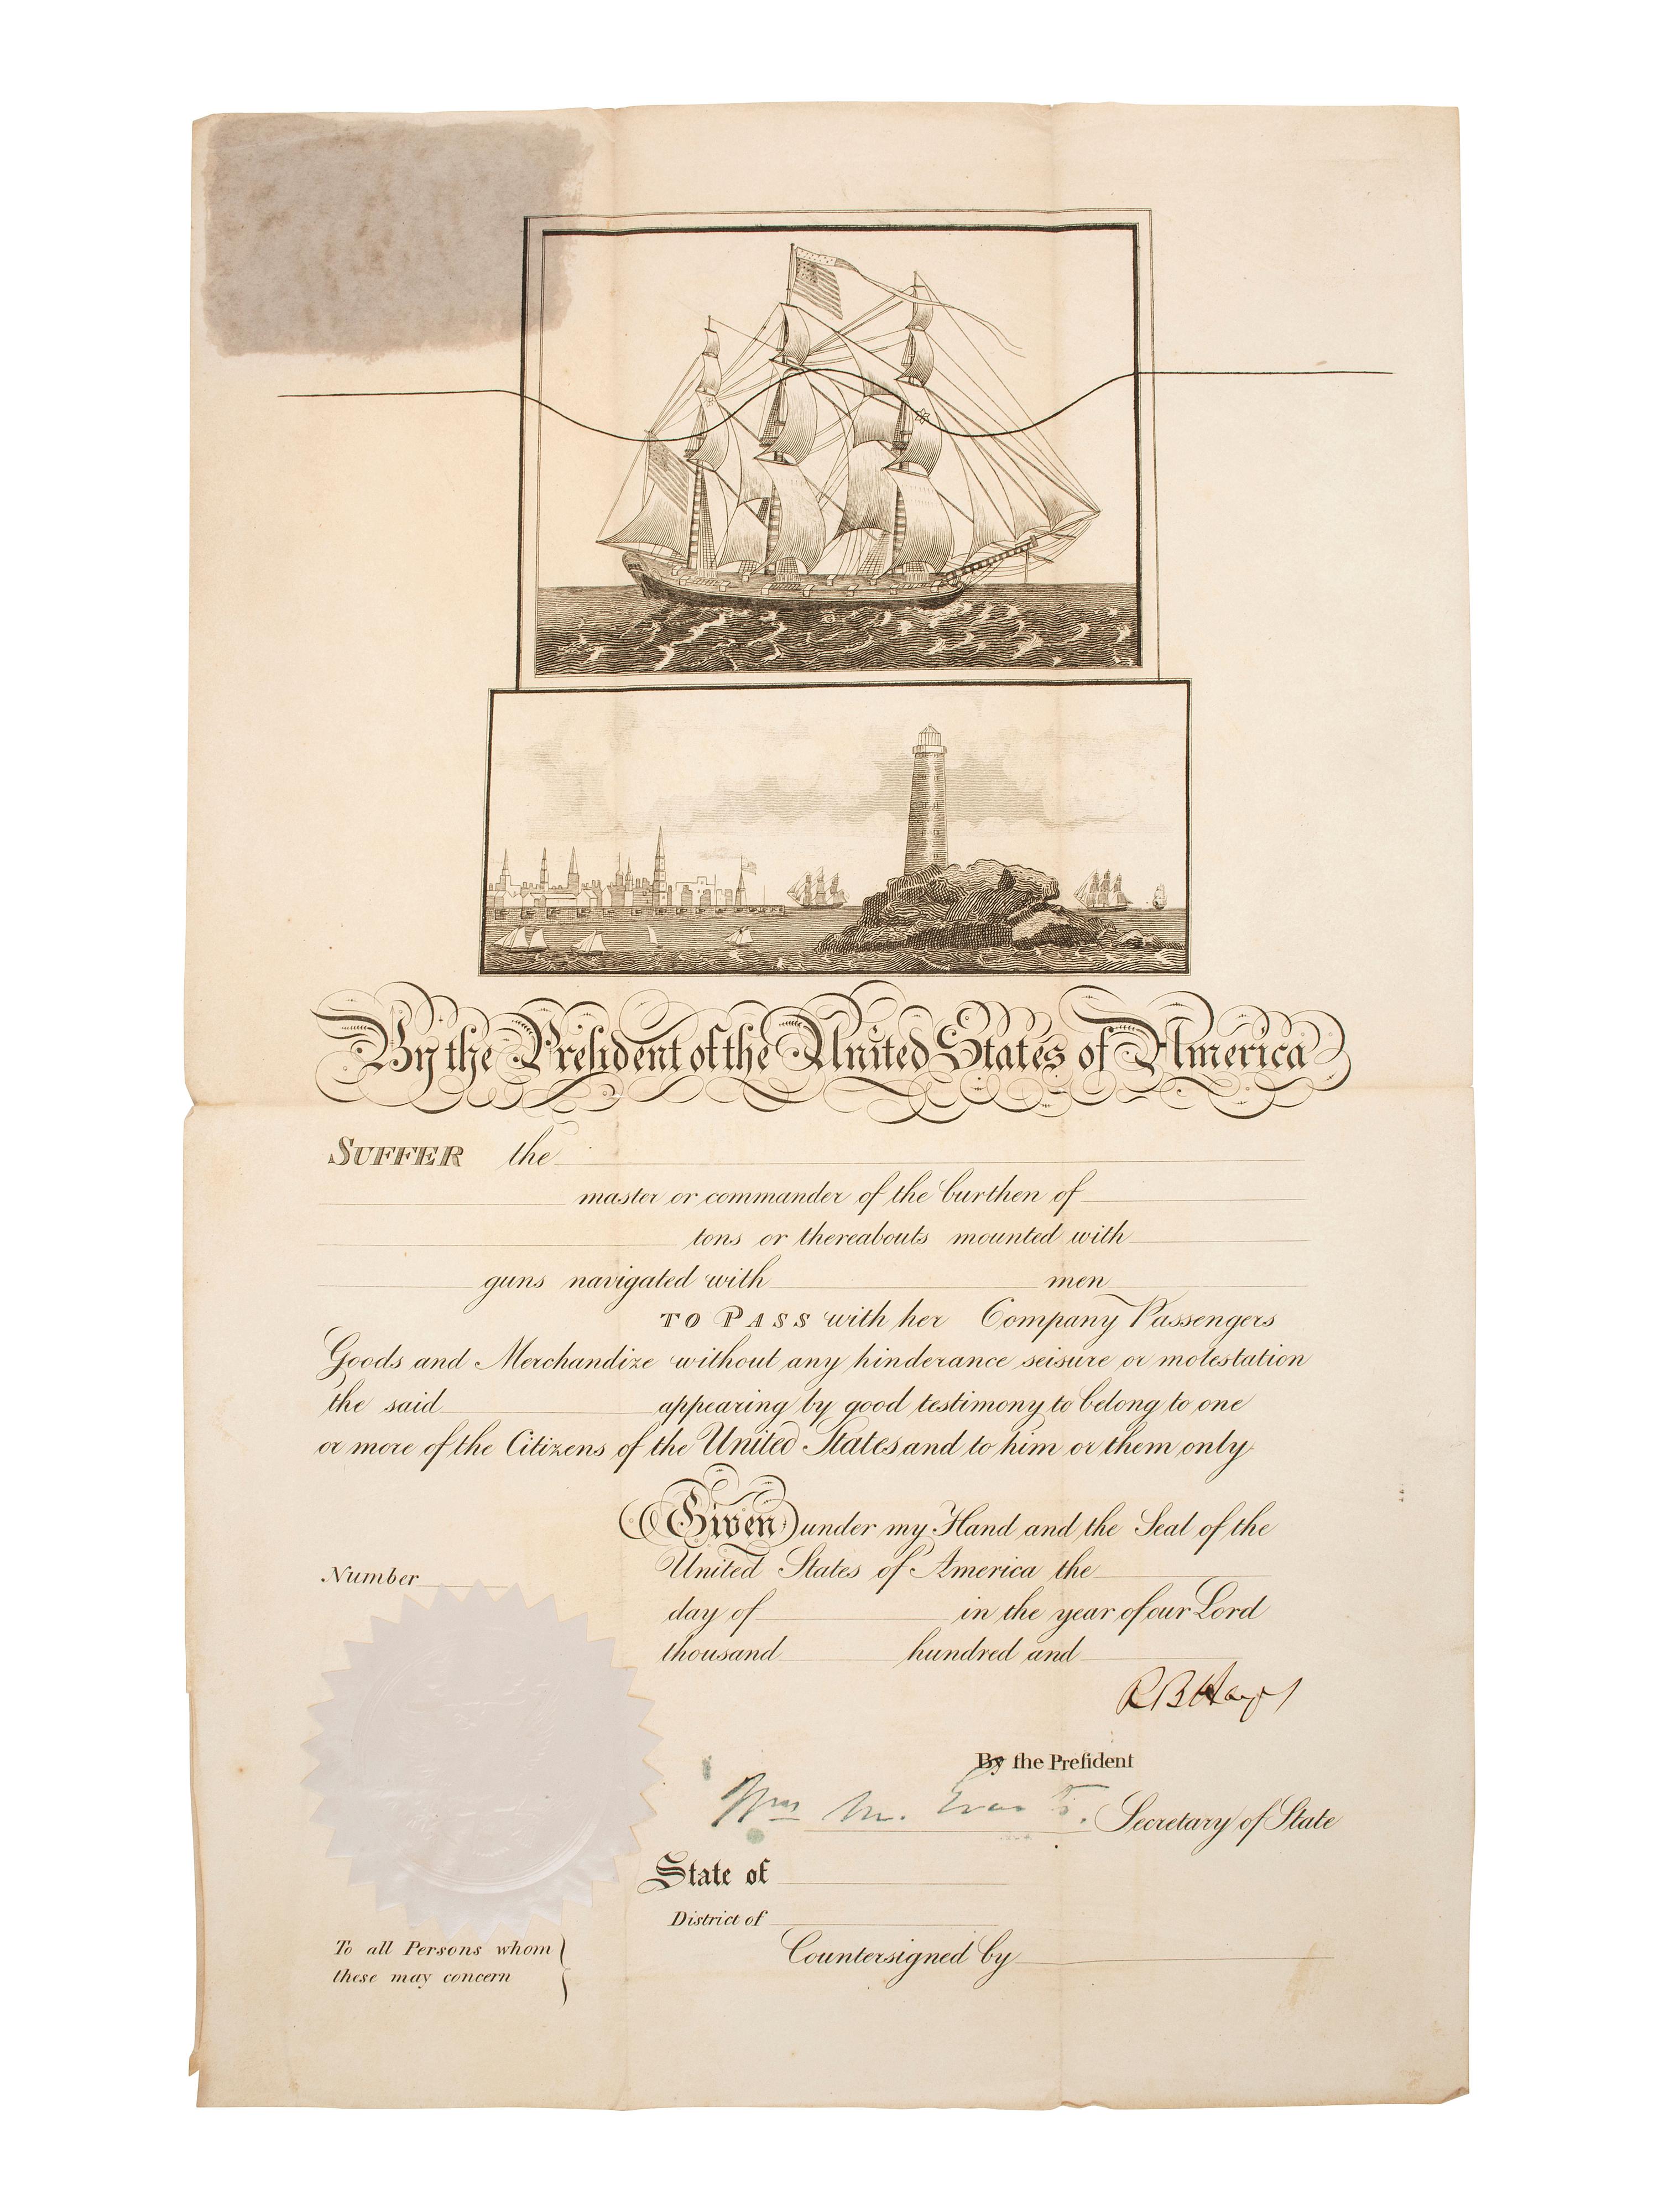 By the President of the United States of America
SUFFER the
master or commander of the burthen of
tons or thereabouts mounted with
guns navigated with men
TO PASS with her Company Passengers
Goods and Merchandize without any hinderance seisure or molestation
the said appearing by good testimony to belong to one
or more of the Citizens of the United States and to him or them only
Given under my Hand and the Seal of the
United States of America the
Number
day of in the year of our Lord
thousand hundred and
R B Hayes
By the President
Wm M. Evarts. Secretary of State
State of
District of
To all Persons whom
these may concern
Countersigned by